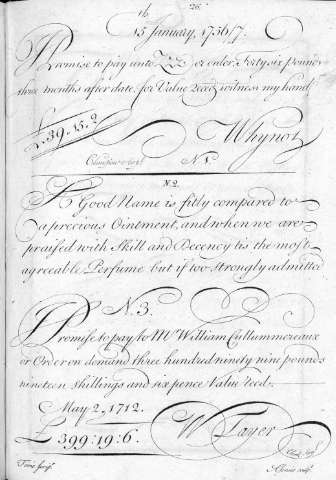 26
15 January, 1736/7.
Promise to pay unto or order Forty six pounds
three months after date. for Value Recd witness my hand
£.39.15.2
Whynot
N 1.
N.2.
A Good Name is fitly compared to
a precious Ointment, and when we are
praised with Skill and Decency tis the most
agreeable Perfume but if too strongly admitted
N.3.
Promise to pay to Mr William Cullummoreaux
or Order on demand three hundred ninety nine pounds
nineteen Shillings and six pence Value Recd.
May 2, 1712.
£ 399:19:6.
W Tayer